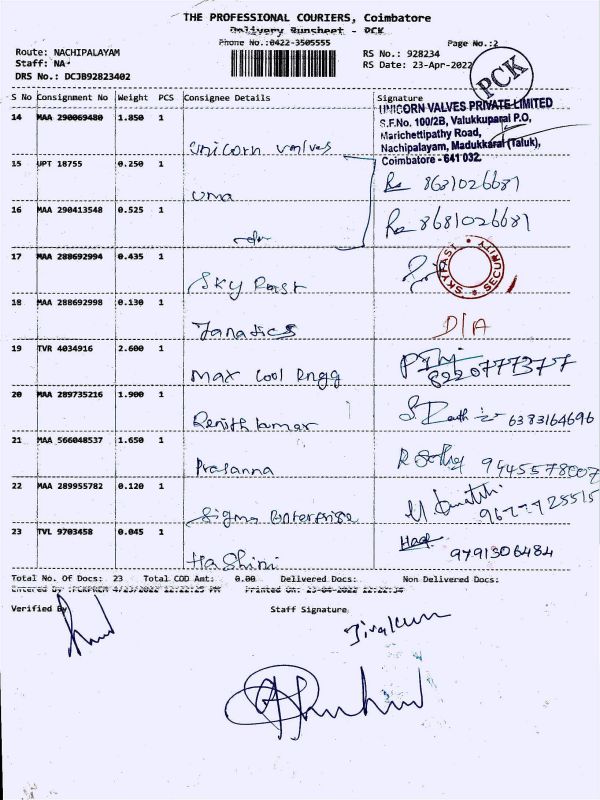 THE PROFESSIONAL COURIERS, Coimbatore
Delivery Runsheet - PCK
Phone No.:0422-3505555
Page No.:2
Route: NACHIPALAYAM
Staff: NA-
DRS No.: DCJB92823402
RS No.: 928234
RS Date: 23-Apr-2022
PCK
S No Consignment No Weight PCS Consignee Details Signature
14 MAA 290069480 1.850 1 Unicorn valves
UNICORN VALVES PRIVATE LIMITED
S.F.No. 100/2B, Valukkuparai P.O,
Marichettipathy Road,
Nachipalayam, Madukkarai (Taluk),
Coimbatore - 641 032.
15 UPT 18755 0.250 1 uma 8681026681
16 MAA 290413548 0.525 1 8681026681
17 MAA 288692994 0.435 1 Sky
SKYFAST * SECURITY *
18 MAA 288692998 0.130 1 Fanatics D/A
19 TVR 4034916 2.600 1 Max Cool Engg 8220777377
20 MAA 289735216 1.900 1 Renith kumar 6383164696
21 MAA 566048537 1.650 1 Prasanna 9445578007
22 MAA 289955782 0.120 1 Sigma Enterprise
23 TVL 9703458 0.045 1 Hashini 9791306484
Total No. Of Docs: 23 Total COD Amt: 0.00 Delivered Docs: Non Delivered Docs:
Entered By :PCKPREM 4/23/2022 12:22:25 PM Printed On: 23-04-2022 12:22:34
Verified By
Staff Signature